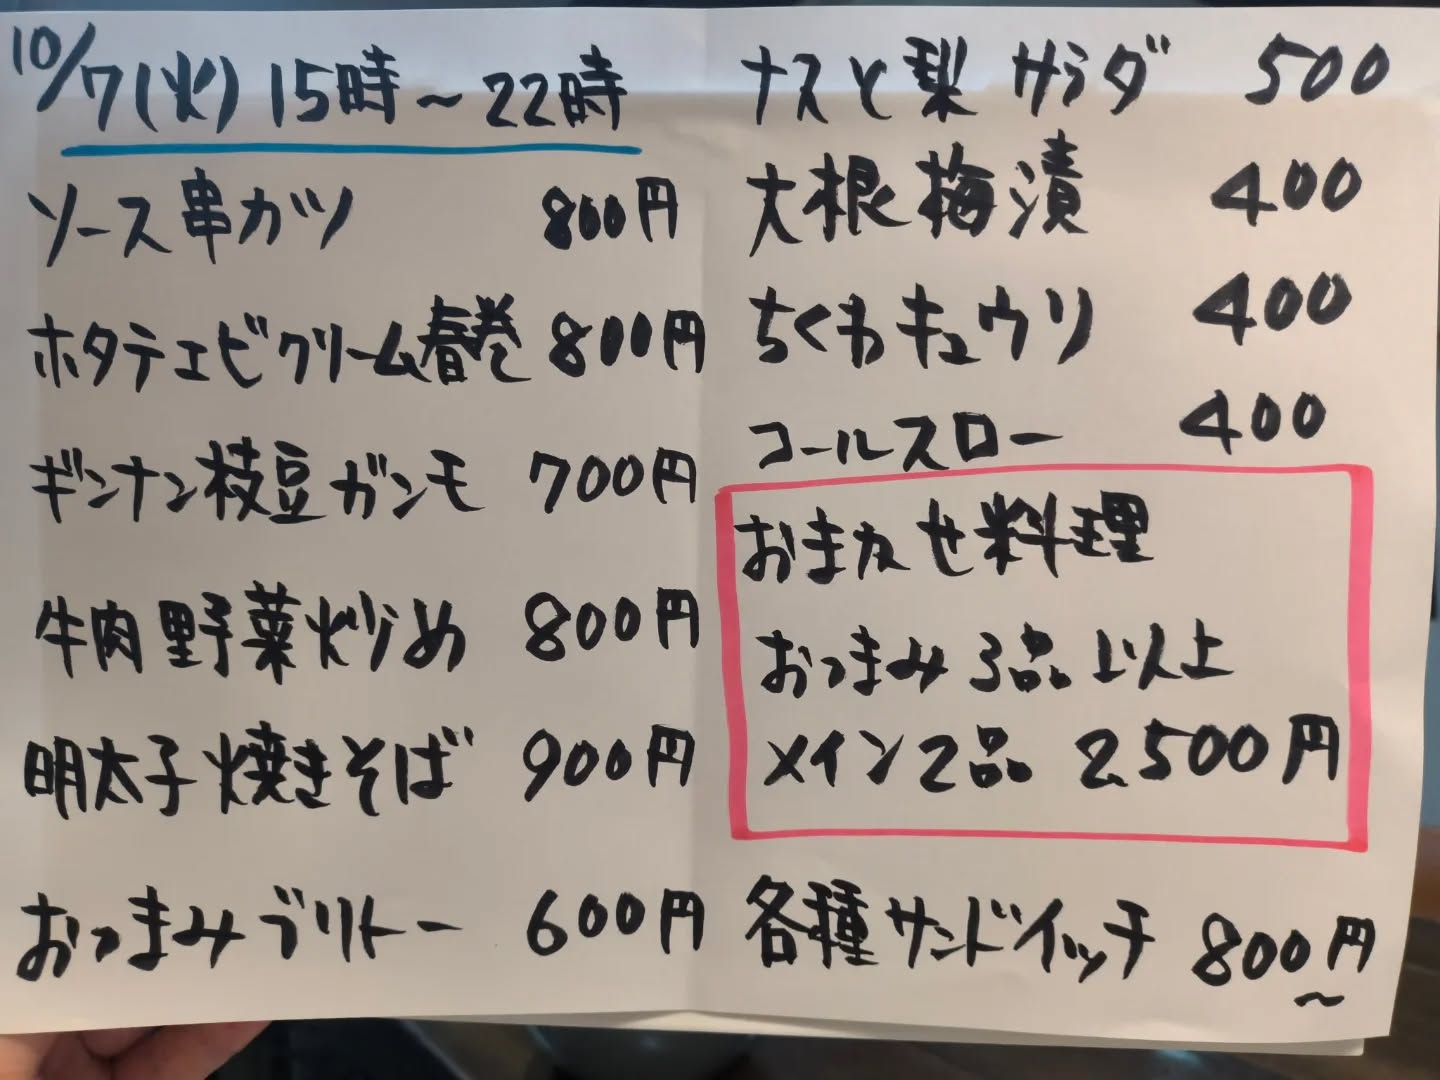 10/7(火) 15時〜22時
ソース串カツ 800円
ホタテエビクリーム春巻 800円
ギンナン枝豆ガンモ 700円
牛肉野菜炒め 800円
明太子焼きそば 900円
おつまみブリトー 600円
ナスと梨サラダ 500
大根梅漬 400
ちくわキュウリ 400
コールスロー 400
おまかせ料理
おつまみ3品以上
メイン2品 2,500円
各種サンドイッチ 800円〜